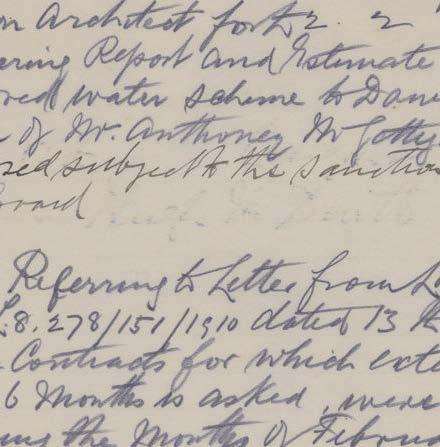 on Architect for £2. 2
ering Report and Estimate
water scheme to
of Mr. Anthoney McGotty
sed subject to the sanction
Board
Referring to Letter from L
L.8. 278/151/1910 dated 13 th
Contracts for which exte
6 Months is asked, were
the Months of Febru